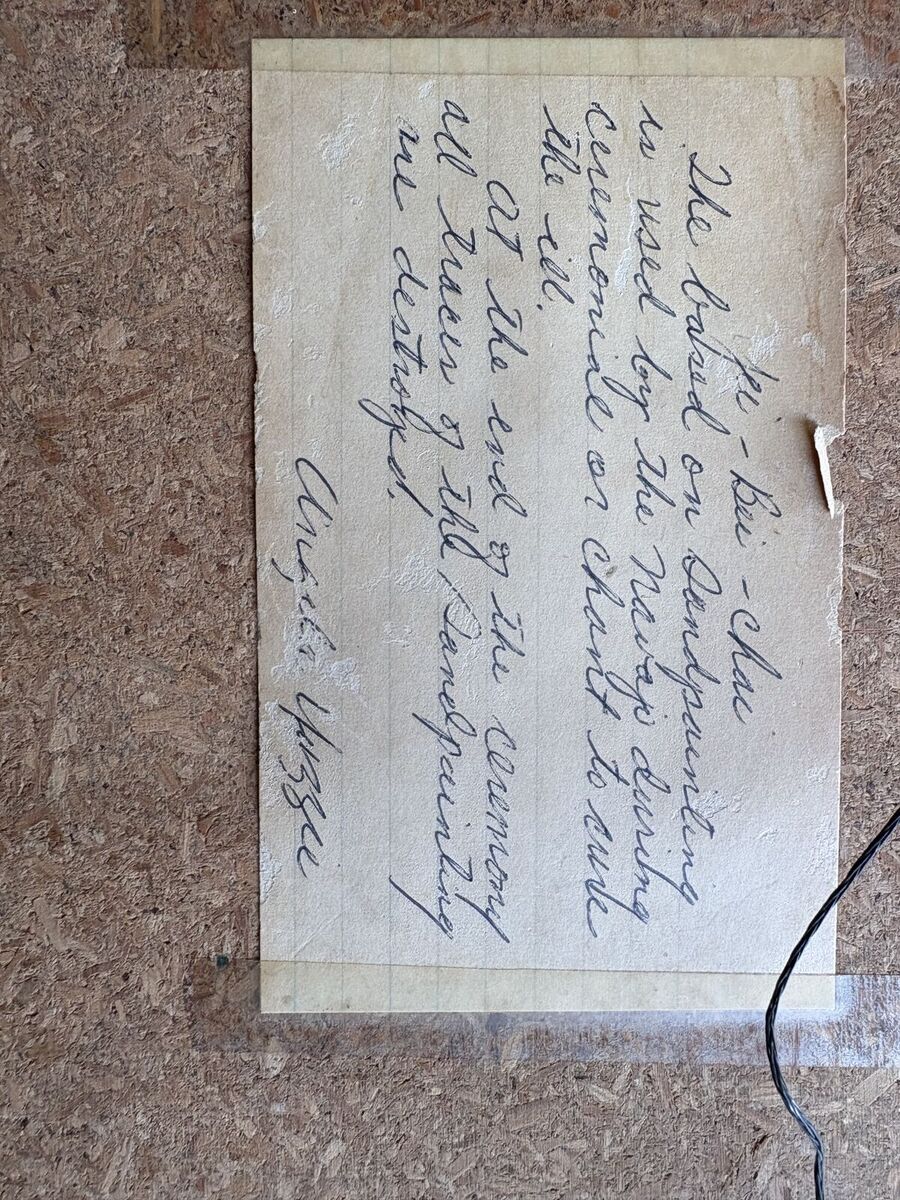 Yei - Bei - Chai
The based on Sandpainting
is used by the Navajo during
ceremonial or chant to cure
the ill.
At the end of the ceremony
all traces of the Sandpainting
are destroyed.
Angela